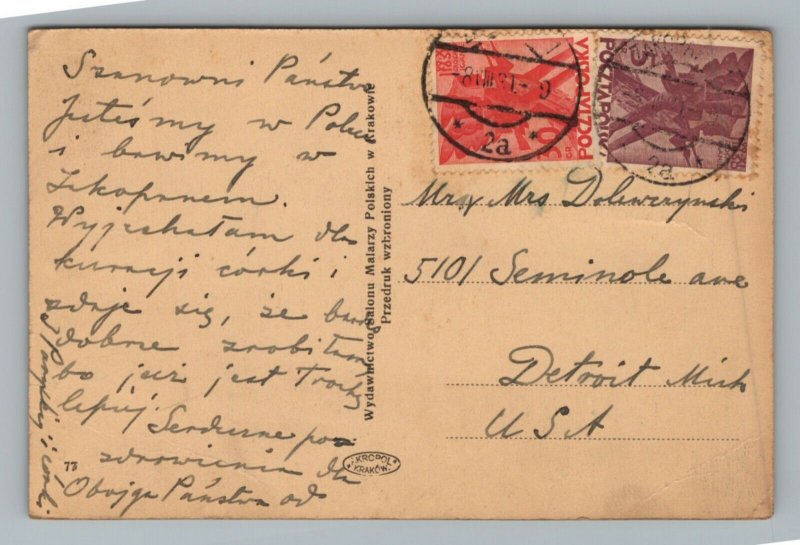 Szanowni Państwo
Jesteśmy w Polsce
i bawimy w
Zakopanem.
Wyjechałam dla
kuracji córki i
zdaje się, że bardzo
dobrze zrobiłam
bo już jest trochę
lepiej.
Serdeczne poz-
drowienia dla
Obojga Państwa od
i córki
77
Wydawnictwo Salonu Malarzy Polskich w Krakowie
Przedruk wzbroniony
AKROPOL
KRAKÓW
POCZTA POLSKA
30
GR
2a
POCZTA POLSKA
15
2a
Mr & Mrs Dolewczynski
5101 Seminole ave
Detroit Mich
USA